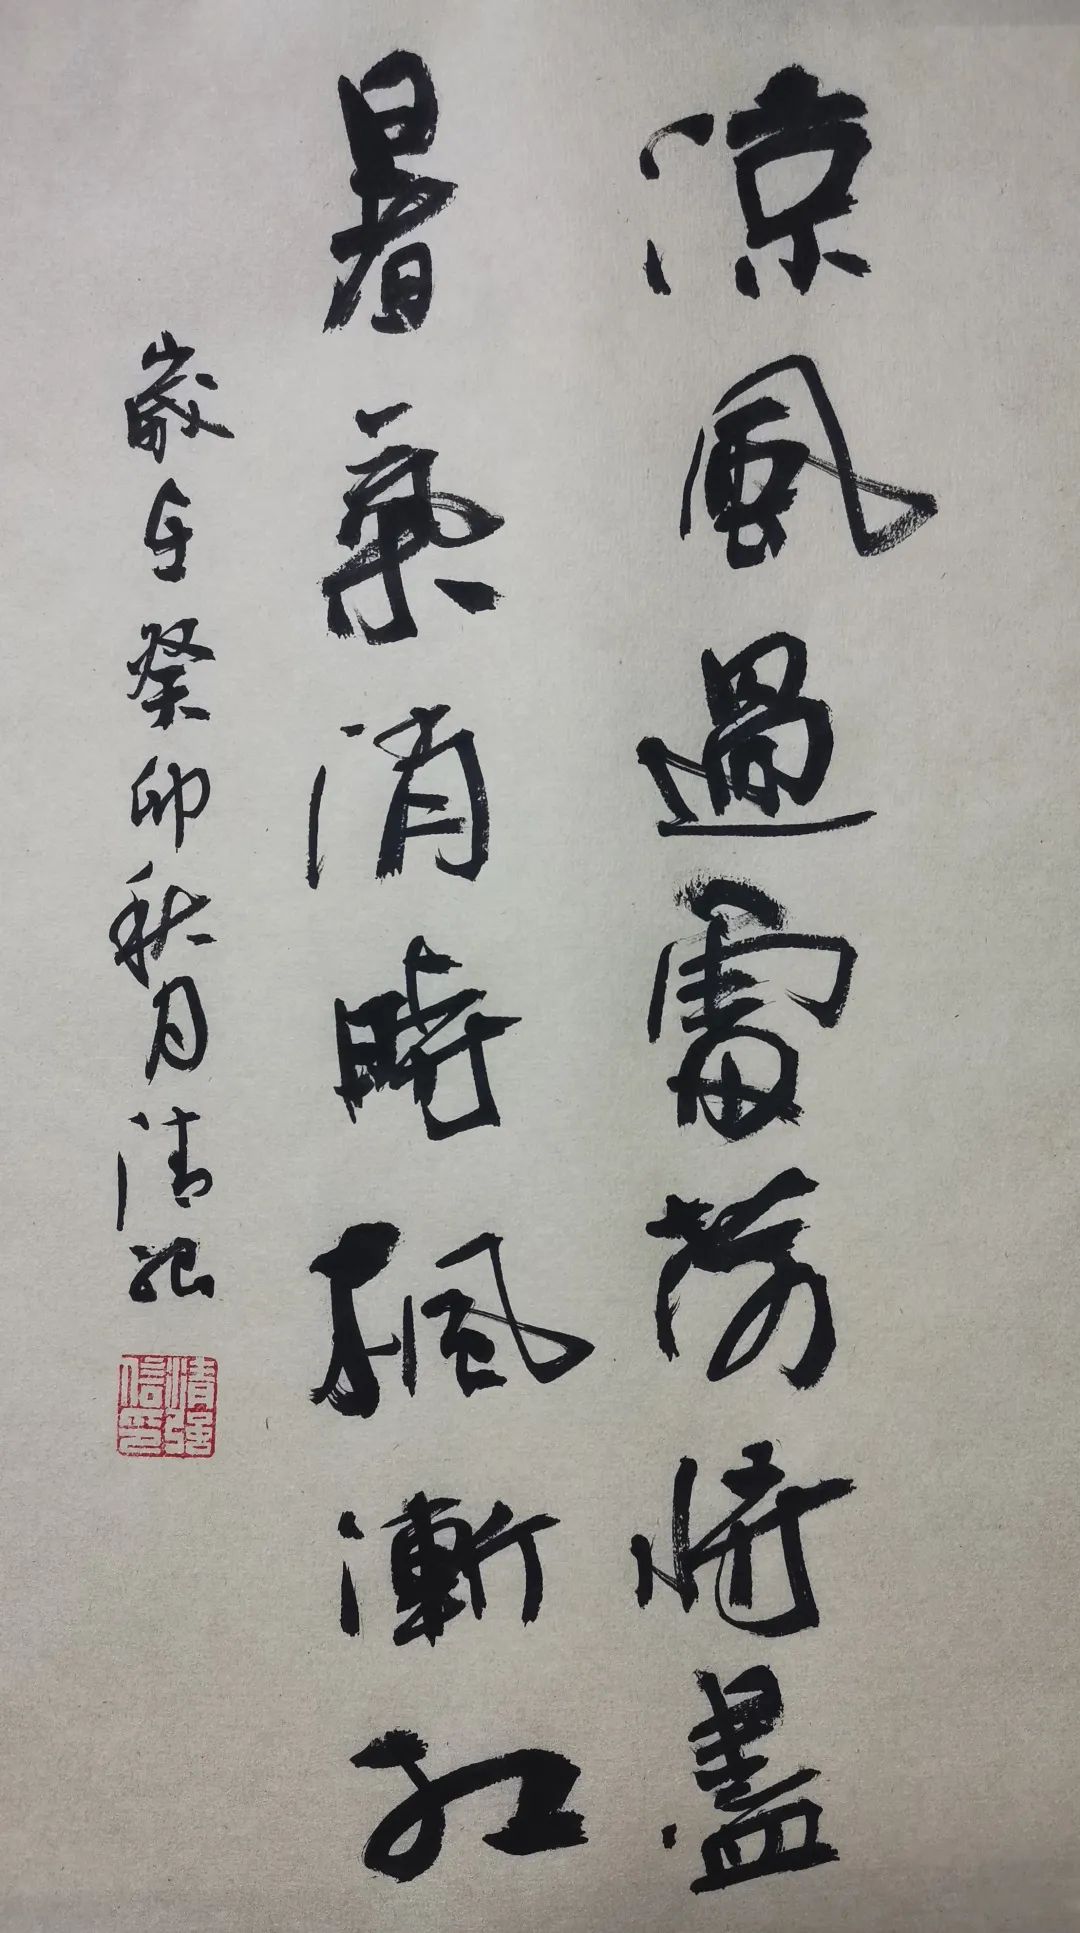 涼風過處荷將盡
暑氣消時楓漸紅
歲在癸卯秋月清強
清強信印